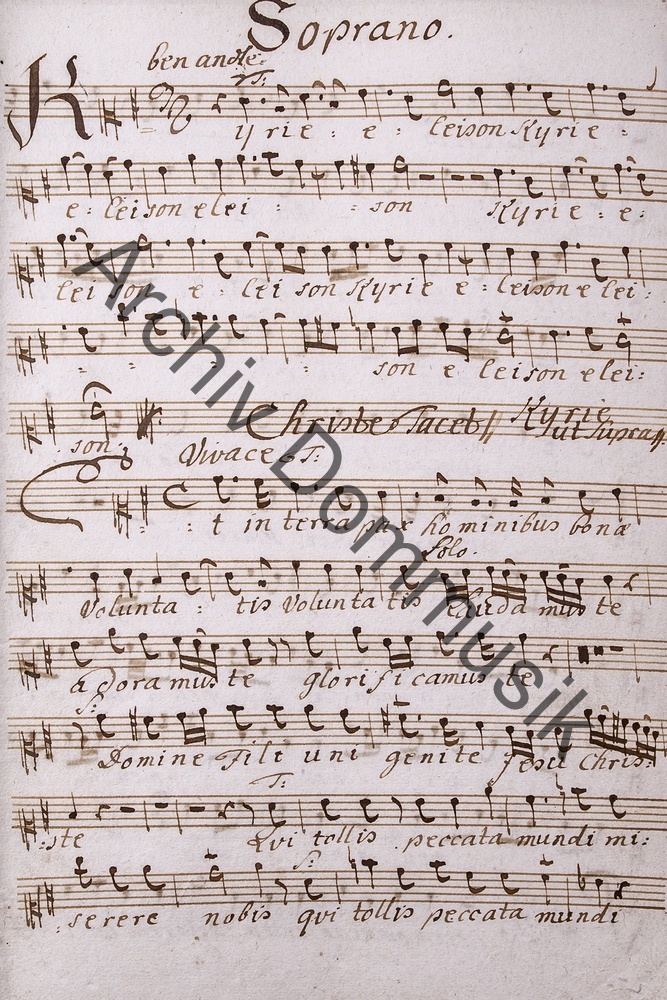 Soprano.
ben andte:
T:
Kyrie - e - leison Kyrie -
e: leison elei - - son Kyrie : e:
lei son e - lei son Kyrie e: leison e lei:
- - - - son e leison elei:
son: Christe Tacet || Kyrie ut supra
Vivace T:
: t in terra pax hominibus bonæ
Solo.
Volunta : tis Volunta tis Lauda mus te
a dora mus te glorifi camus te
S:
Domine Fili uni genite Jesu Chris:
T:
:ste Qvi tollis peccata mundi mi:
S:
serere nobis qvi tollis peccata mundi
Archiv Dommusik